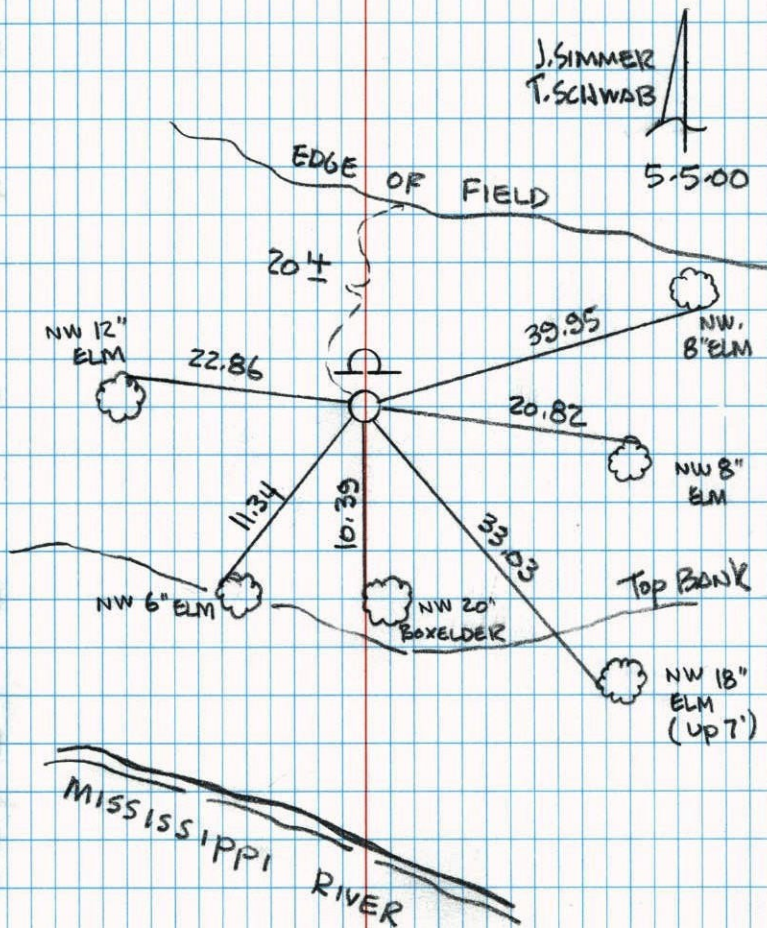 J. SIMMER
T. SCHWAB
5.5.00
EDGE OF FIELD
20 ±
NW 12"
ELM
22.86
39.95
NW.
8" ELM
20.82
NW 8"
ELM
11.34
10.39
33.03
NW 6" ELM
NW 20"
BOXELDER
Top BANK
NW 18"
ELM
(up 7')
MISSISSIPPI RIVER